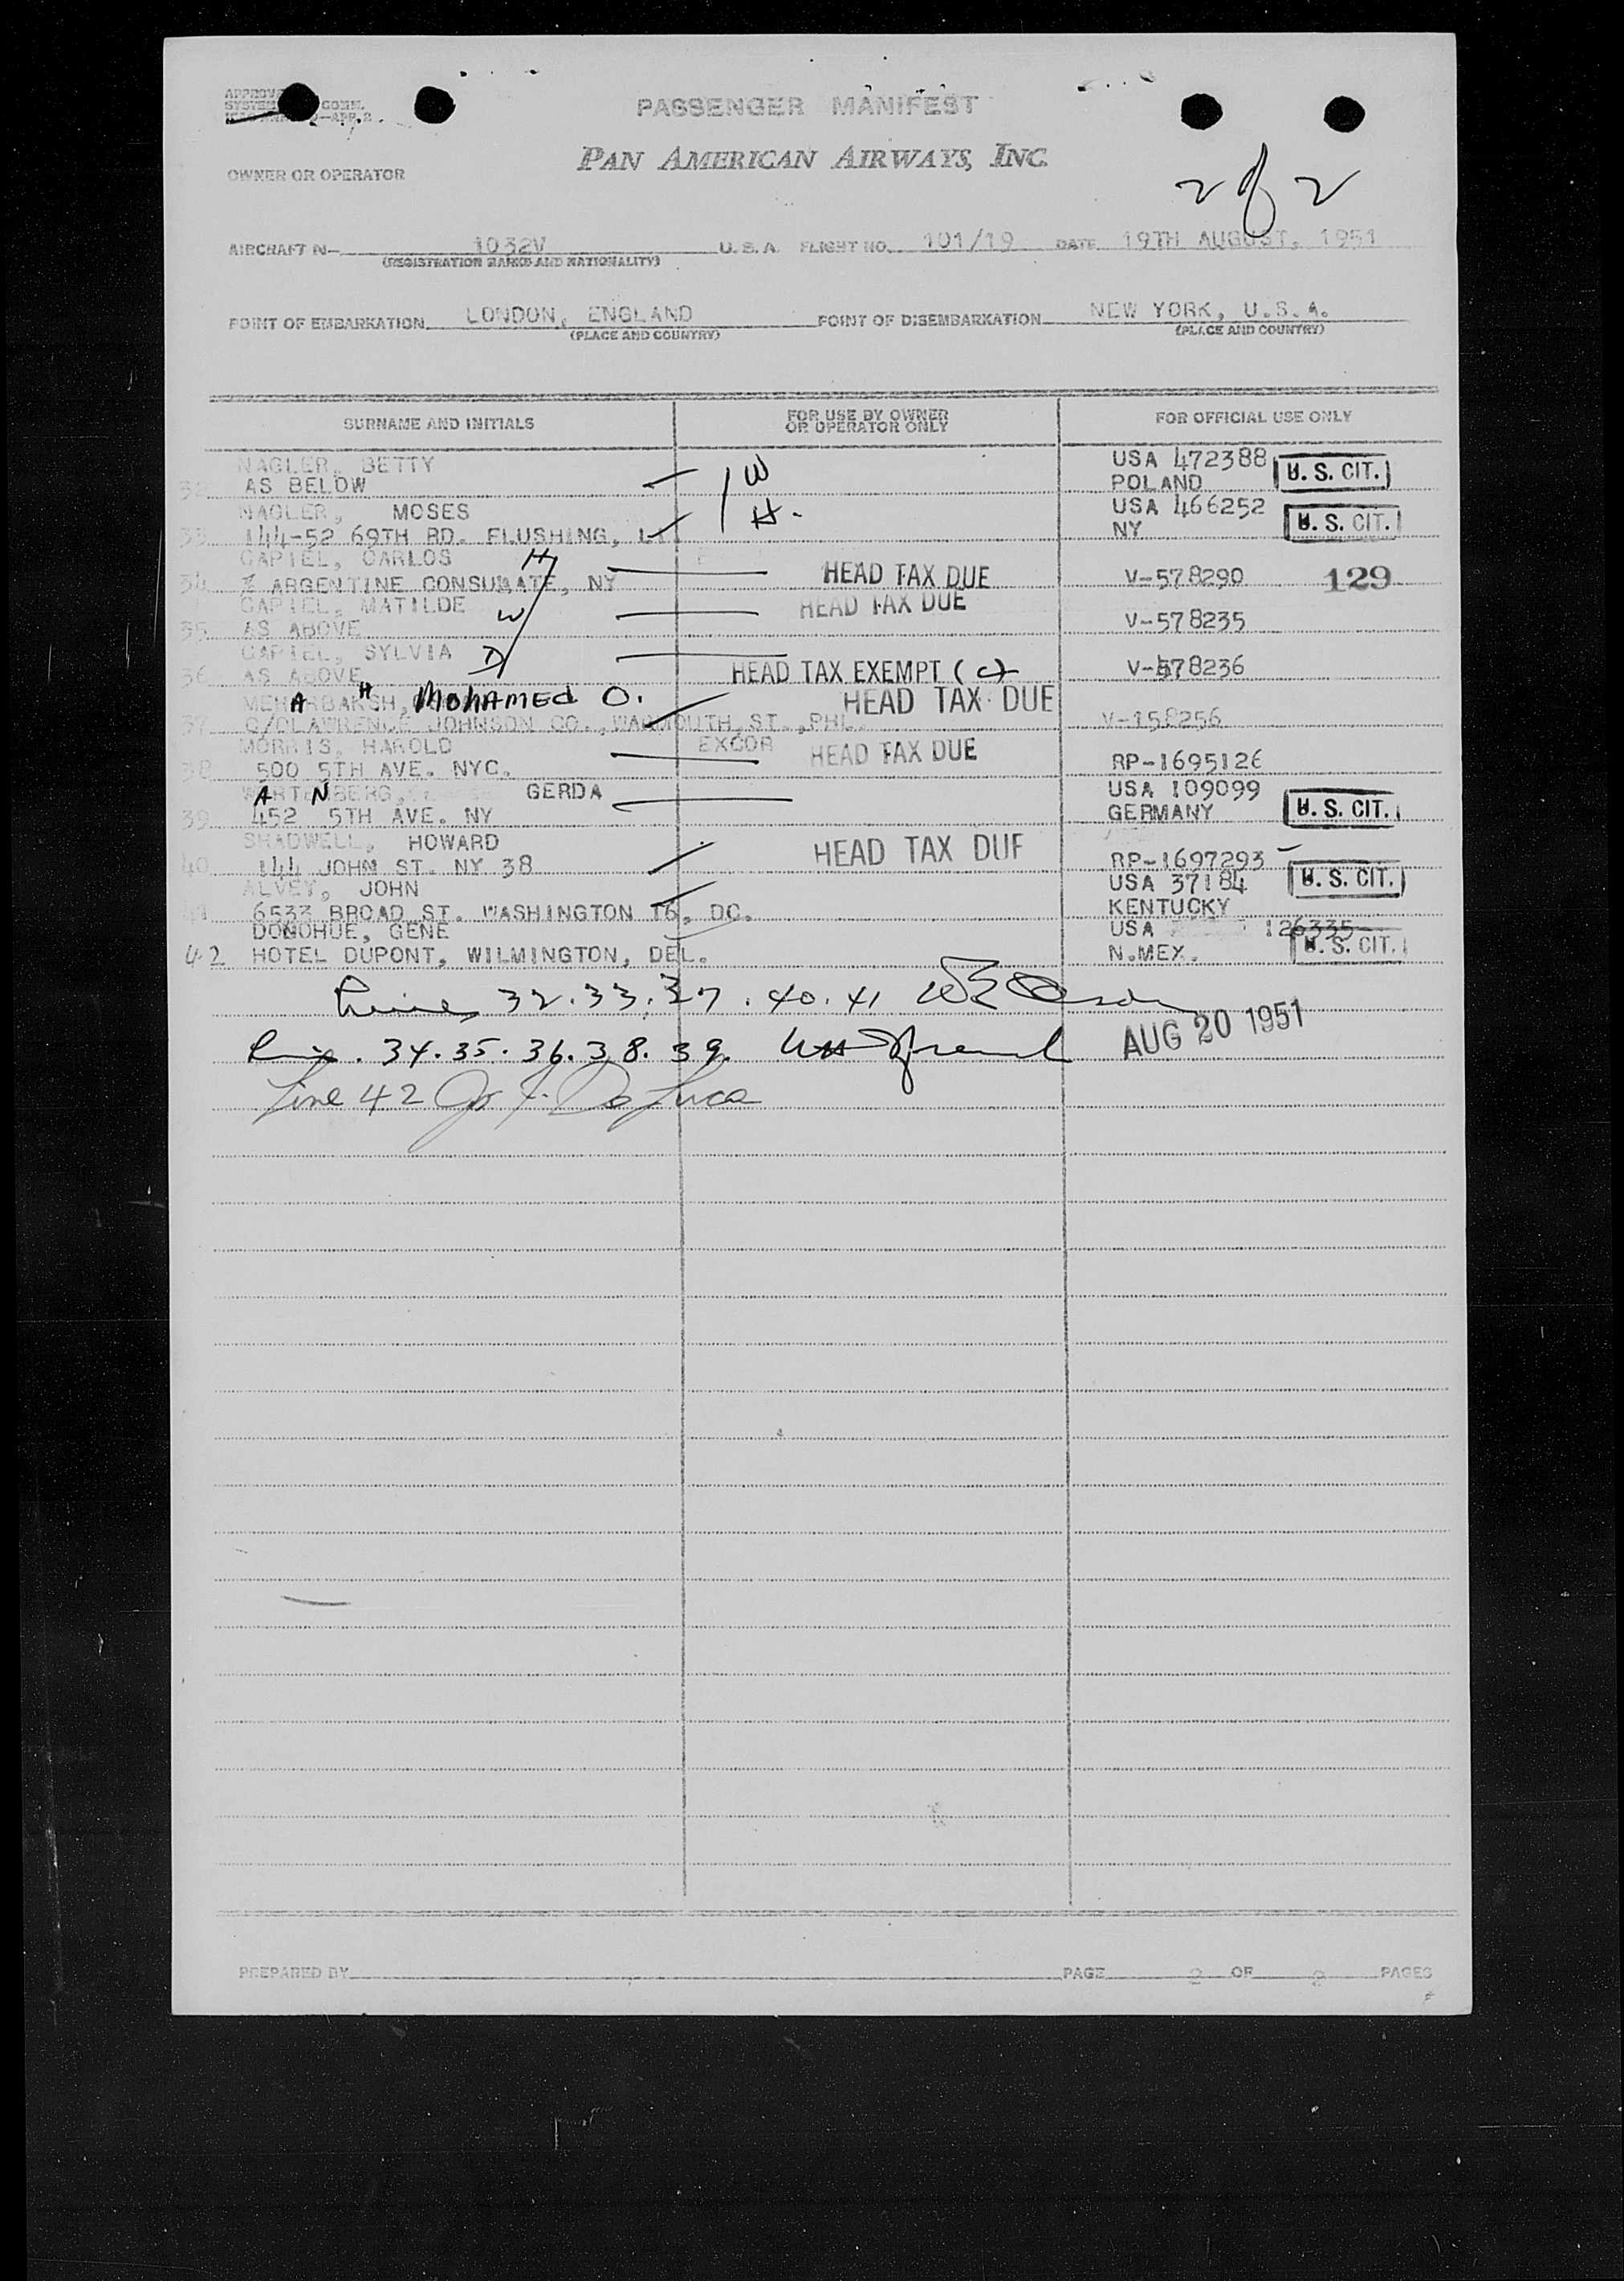 PASSENGER MANIFEST
PAN AMERICAN AIRWAYS, INC.
OWNER OR OPERATOR
2 of 2
AIRCRAFT N— 1032V U.S.A. FLIGHT NO. 101/19 DATE 19TH AUGUST, 1951
(REGISTRATION MARKS AND NATIONALITY)
POINT OF EMBARKATION LONDON, ENGLAND POINT OF DISEMBARKATION NEW YORK, U.S.A.
(PLACE AND COUNTRY) (PLACE AND COUNTRY)
SURNAME AND INITIALS FOR USE BY OWNER OR OPERATOR ONLY FOR OFFICIAL USE ONLY
NAGLER, BETTY W USA 472388 U. S. CIT.
32 AS BELOW POLAND
NAGLER, MOSES H. USA 466252 U. S. CIT.
33 144-52 69TH RD. FLUSHING, NY
CAPIEL, CARLOS H
34 % ARGENTINE CONSULATE, NY HEAD TAX DUE V-578290 129
CAPIEL, MATILDE W HEAD TAX DUE
35 AS ABOVE V-578235
CAPIEL, SYLVIA D
36 AS ABOVE HEAD TAX EXEMPT (C) V-578236
A H MOHAMED O. HEAD TAX DUE
37 C/O LAWRENCE JOHNSON CO., ST., PHL. V-158256
MORRIS, HAROLD EXCOR HEAD TAX DUE
38 500 5TH AVE. NYC. RP-1695126
A N GERDA USA 109099
39 452 5TH AVE. NY GERMANY U. S. CIT.
SHADWELL, HOWARD HEAD TAX DUE
40 144 JOHN ST. NY 38 RP-1697293
ALVEY, JOHN USA 37184 U. S. CIT.
41 6533 BROAD ST. WASHINGTON 16, DC. KENTUCKY
DONOHUE, GENE USA 126335
42 HOTEL DUPONT, WILMINGTON, DEL. N.MEX. U. S. CIT.
Lines 32.33.37.40.41
AUG 20 1951
34.35.36.38.39.
Line 42
PREPARED BY PAGE 2 OF 2 PAGES